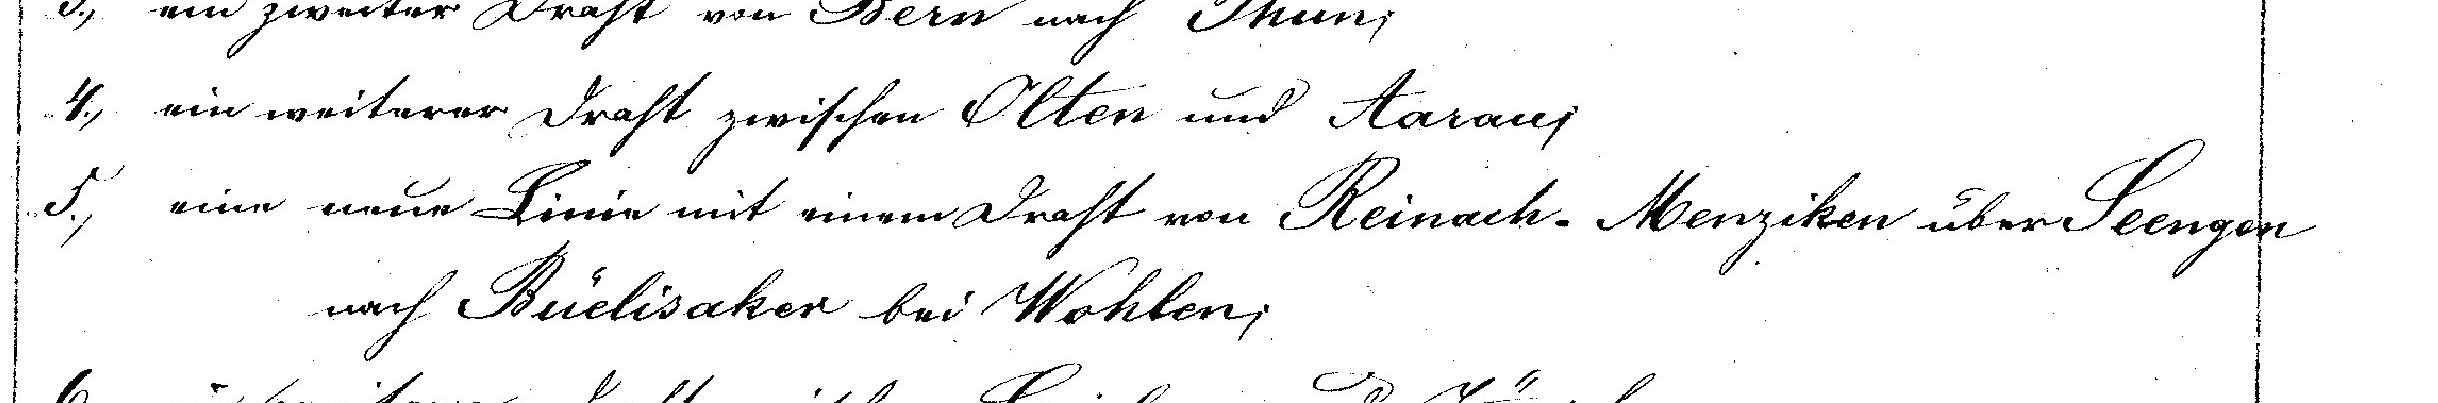 3., ein zweiter Draht von Bern nach Thun;
4., ein weiterer Draht zwischen Olten und Aarau;
5., eine neue Linie mit einem Draht von Reinach-Menziken über Seengen
nach Büelisaker bei Wohlen;
6